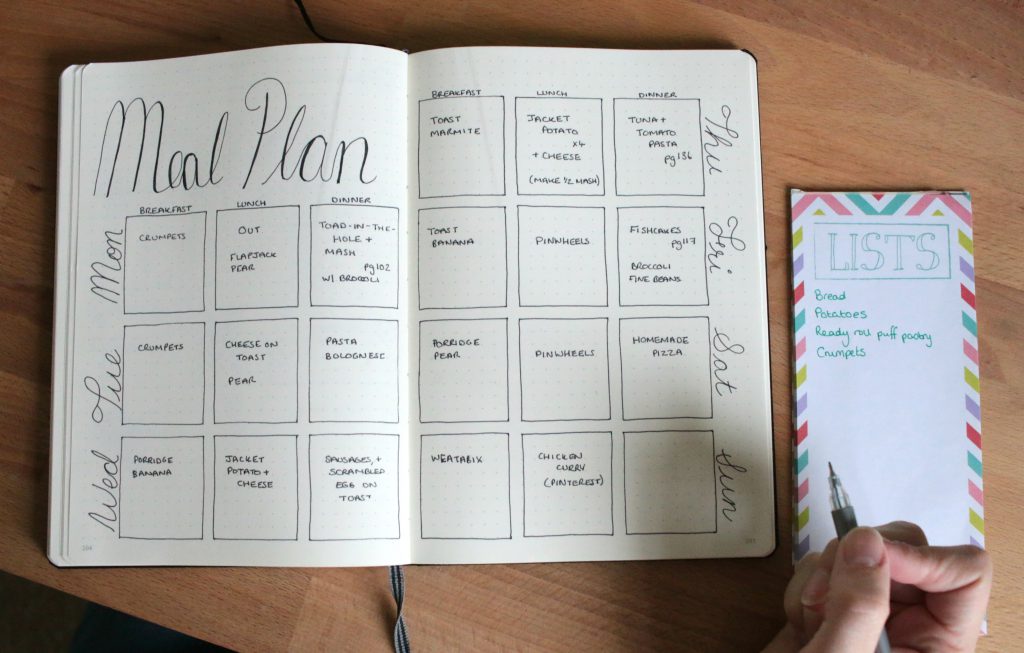 Meal Plan
BREAKFAST
LUNCH
DINNER
Mon
CRUMPETS
OUT
FLAPJACK
PEAR
TOAD-IN-THE-
HOLE +
MASH
pg102
W/ BROCCOLI
Tue
CRUMPETS
CHEESE ON
TOAST
PEAR
PASTA
BOLOGNESE
Wed
PORRIDGE
BANANA
JACKET
POTATO +
CHEESE
SAUSAGES, +
SCRAMBLED
EGG ON
TOAST
204
BREAKFAST
LUNCH
DINNER
TOAST
MARMITE
JACKET
POTATO
x4
+ CHEESE
(MAKE 1/2 MASH)
TUNA +
TOMATO
PASTA
pg136
Thu
TOAST
BANANA
PINWHEELS
FISHCAKES
pg117
BROCCOLI
FINE BEANS
Fri
PORRIDGE
PEAR
PINWHEELS
HOMEMADE
PIZZA
Sat
WEATABIX
CHICKEN
CURRY
(PINTEREST)
Sun
LISTS
Bread
Potatoes
Ready roll puff pastry
Crumpets